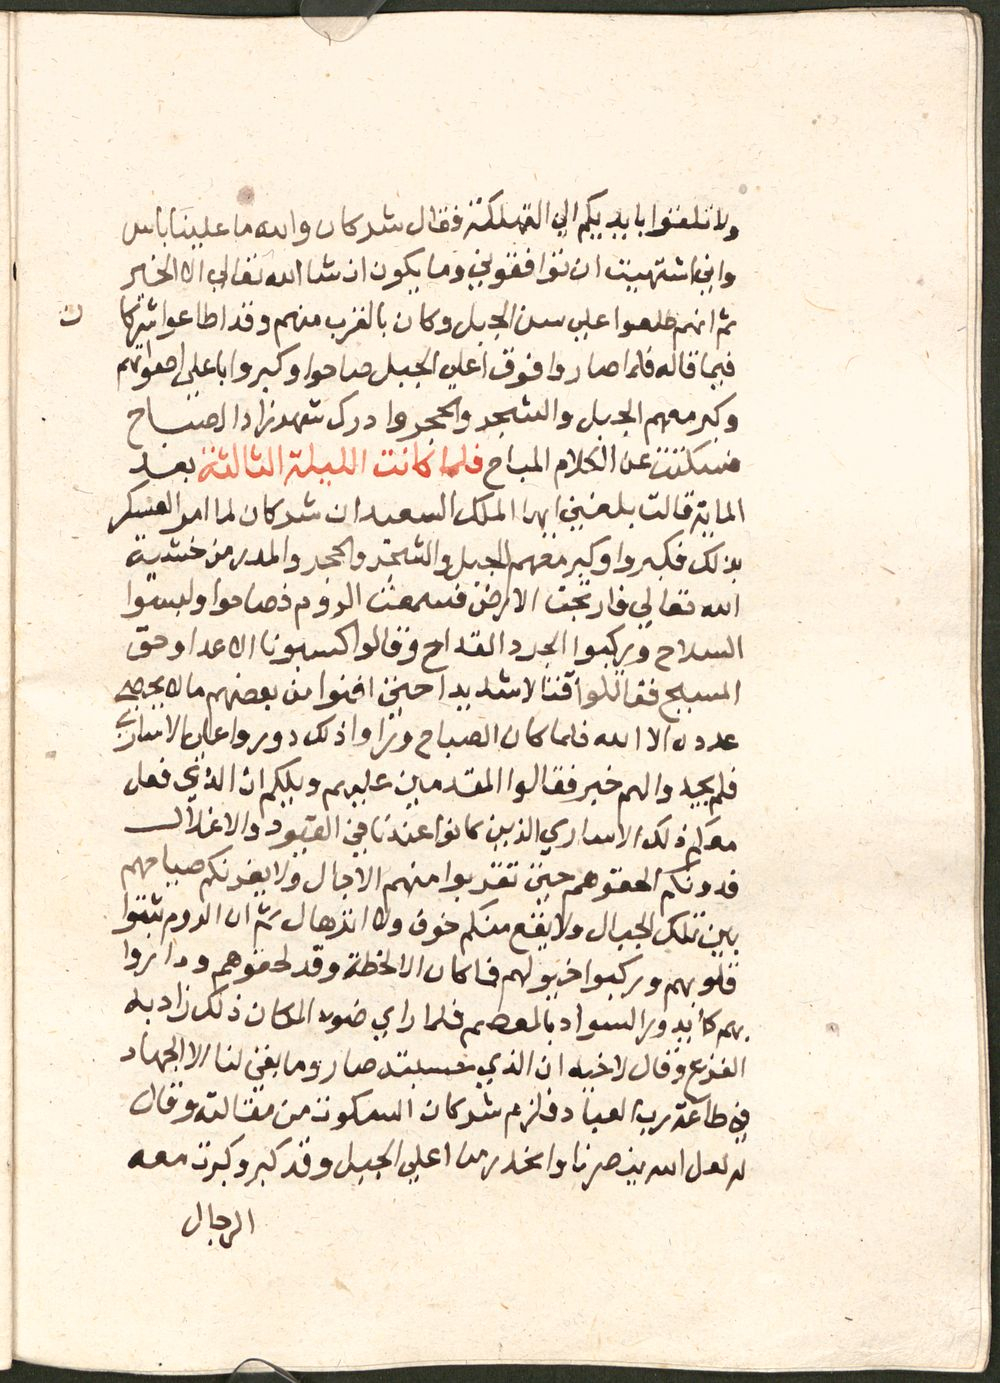 ولا تلقوا بايديكم الي التهلكة فقال شركان والله ما علينا باس
واني اشتهيت ان توافقوني وما يكون ان شا الله تعالي الا الخير
ثم انهم طلعوا علي سن الجبل وكان بالقرب منهم وقد اطاعوا شركا
ن
فيما قاله فلما صاروا فوق اعلي الجبل صاحوا وكبروا باعلي اصواتهم
وكبر معهم الجبل والشجر والحجر وادرك شهرزاد الصباح
فسكتت عن الكلام المباح فلما كانت الليلة الثالثة بعد
الماية قالت بلغني ايها الملك السعيد ان شركان لما امر العسكر
بذلك فكبروا وكبر معهم الجبل والشجر والحجر والمدر من خشية
الله تعالي فارتجت الارض فسمعت الروم فصاحوا ولبسوا
السلاح وركبوا الجرد القداح وقالوا كبسونا الاعدا وحق
المسيح فقاتلوا قتالا شديدا حتي افنوا من بعضهم ما لا يحصي
عدده الا الله فلما كان الصباح وراوا ذلك دوروا علي الاساري
فلم يجدوا لهم خبر فقالوا المقدمين عليهم ويلكم ان الذي فعل
معكم ذلك الاساري الذين كانوا عندنا في القيود والاغلال
فدونكم الحقوهم حتي تقربوا منهم الاجال ولا يغرنكم صياحهم
بين تلك الجبال ولا يقع منكم خوف ولا انذهال ثم ان الروم ثبتوا
قلوبهم وركبوا خيولهم فما كان الا لحظة وقد لحقوهم وداروا
بهم كما يدور السواد بالمعصم فلما راي ضوء المكان ذلك زاد به
الفزع وقال لاخيه ان الذي حسبته صار وما بقي لنا الا الجهاد
في طاعة رب العباد فلزم شركان السكوت من مقالته وقال
له لعل الله ينصرنا وانحدر من اعلي الجبل وقد كبر وكبرت معه
الرجال